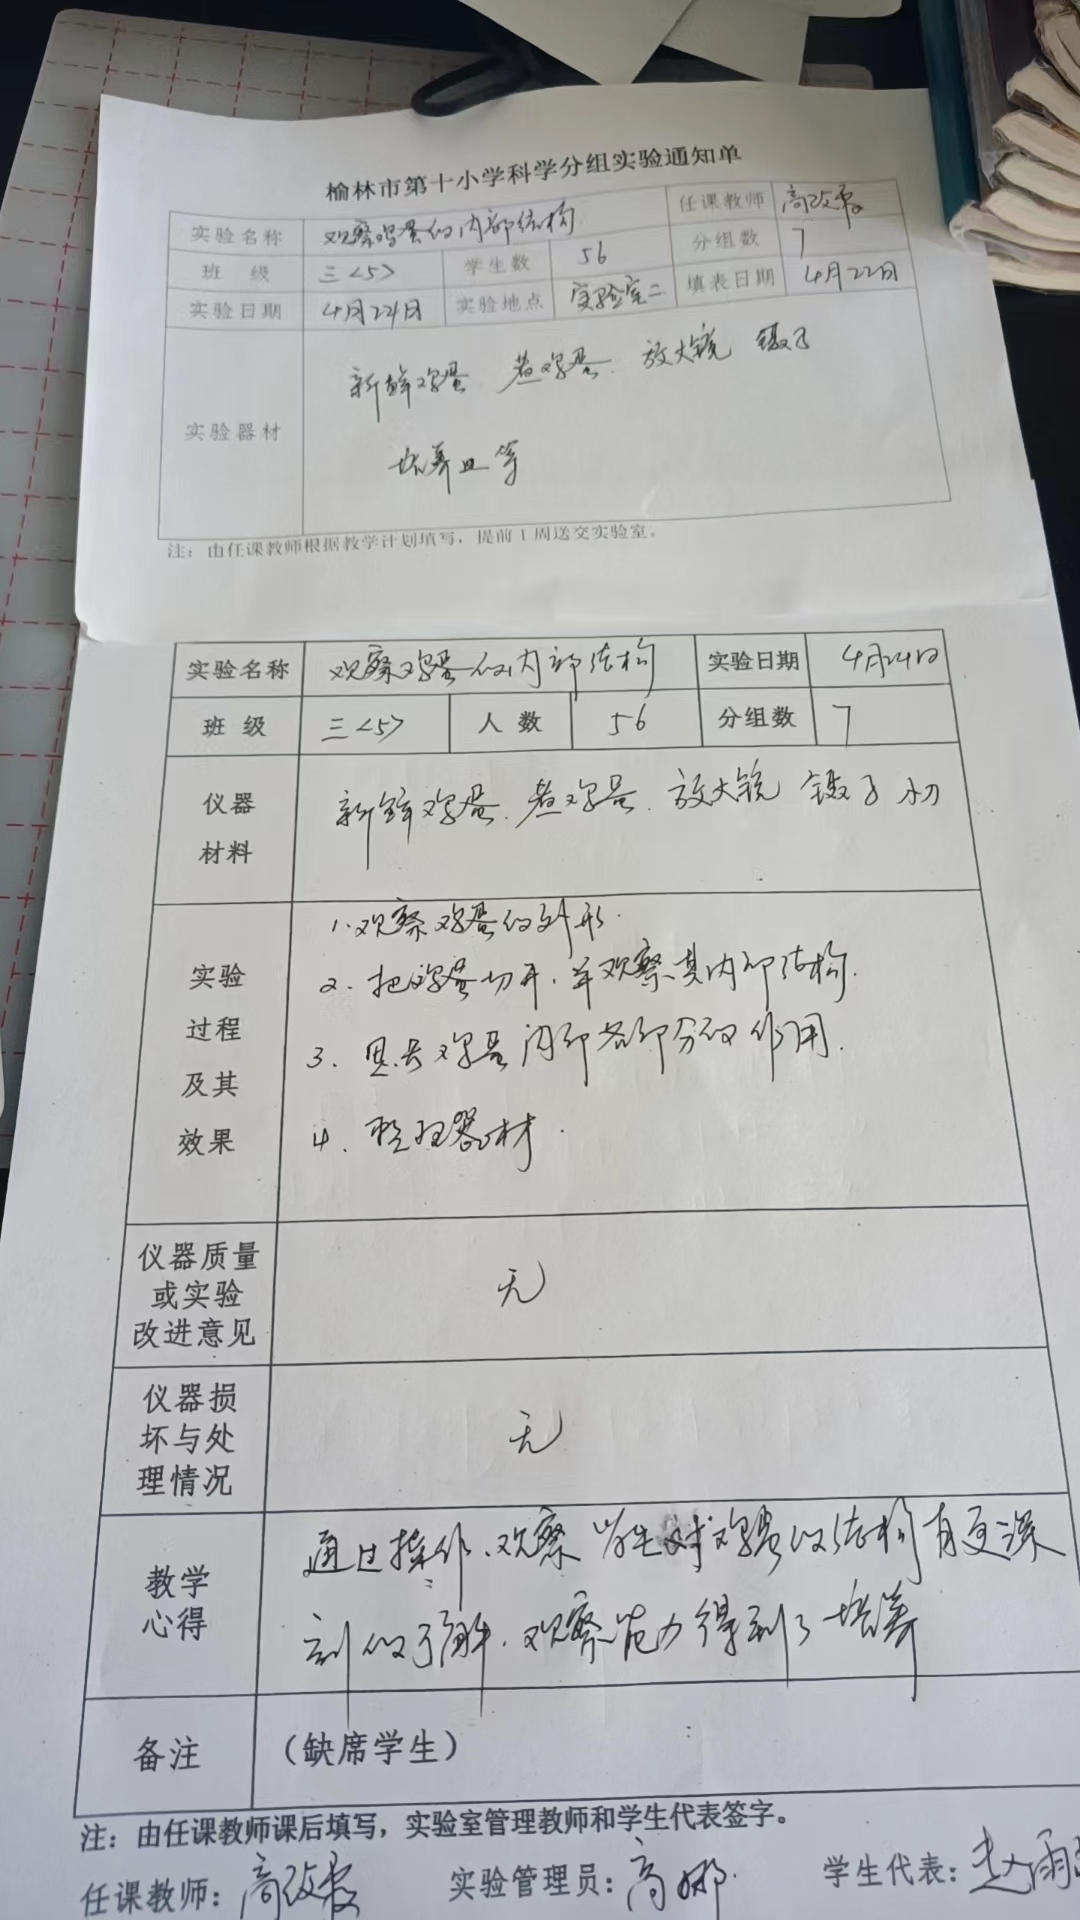 榆林市第十小学科学分组实验通知单
实验名称 观察鸡蛋的内部结构 任课教师 高改霞
班 级 三<5> 学生数 56 分组数 7
实验日期 4月24日 实验地点 实验室二 填表日期 4月22日
实验器材 新鲜鸡蛋、煮鸡蛋、放大镜 镊子
培养皿等
注：由任课教师根据教学计划填写，提前1周送交实验室。
实验名称 观察鸡蛋的内部结构 实验日期 4月24日
班 级 三<5> 人 数 56 分组数 7
仪器材料 新鲜鸡蛋、煮鸡蛋、放大镜 镊子 小刀
实验过程及其效果
1.观察鸡蛋的外形.
2.把鸡蛋切开,并观察其内部结构.
3.思考鸡蛋内部各部分的作用.
4.整理器材.
仪器质量或实验改进意见 无
仪器损坏与处理情况 无
教学心得 通过操作、观察 学生对鸡蛋的结构有更深
刻的了解、观察能力得到了培养
备注 （缺席学生）
注：由任课教师课后填写，实验室管理教师和学生代表签字。
任课教师：高改霞 实验管理员：高娜 学生代表：赵雨